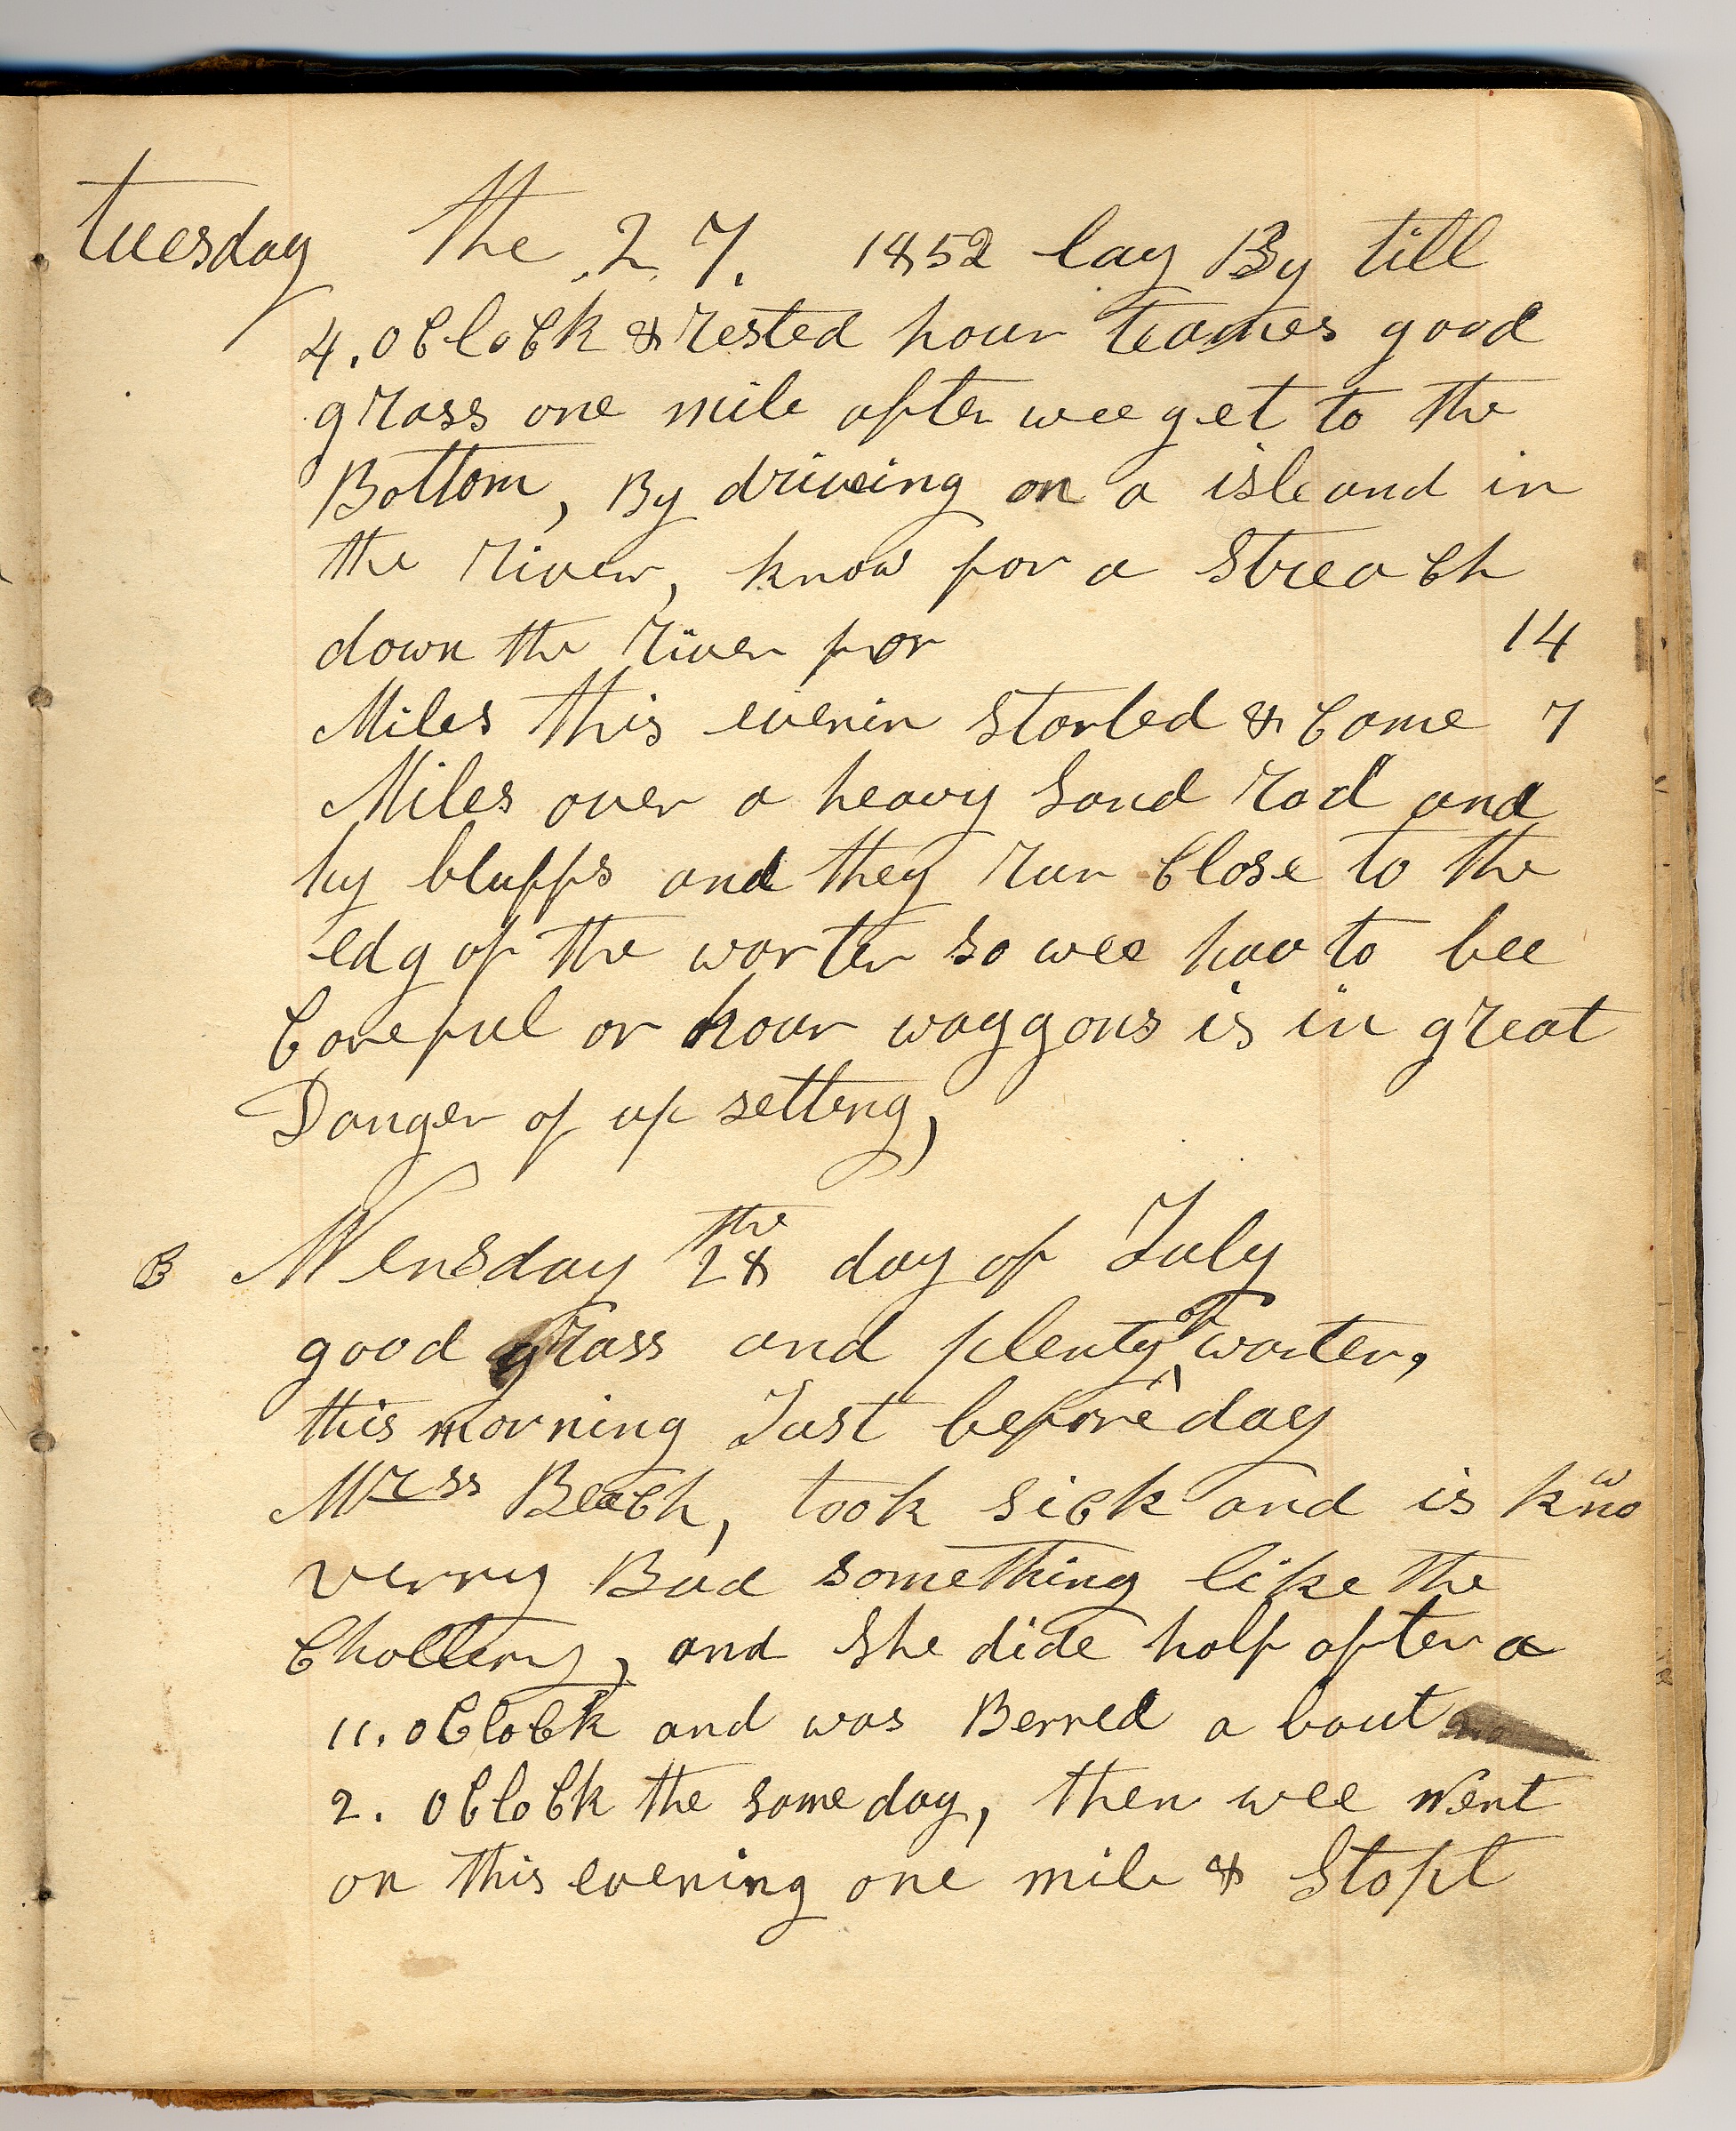 tuesday the 27. 1852 lay By till
4. oclock & rested hour teames good
grass one mile after wee get to the
Bottom, By driveing on a isleand in
the river, know for a streach
down the river for 14
Miles this evenin started & came 7
Miles over a heavy sand rod and
hy bluffs and they run close to the
edg of the warter so wee hav to bee
careful or hour waggons is in great
Danger of up setteng,
B Wensday the 28 day of July
good grass and plenty of warter,
this morning Just before day
Mrss Beach, took sick and is know
verry Bad something like the
Chollery, and she dide half after a
11. oclock and was Berred a bout
2. oclock the same day, then wee Went
on this evening one mile & Stopt